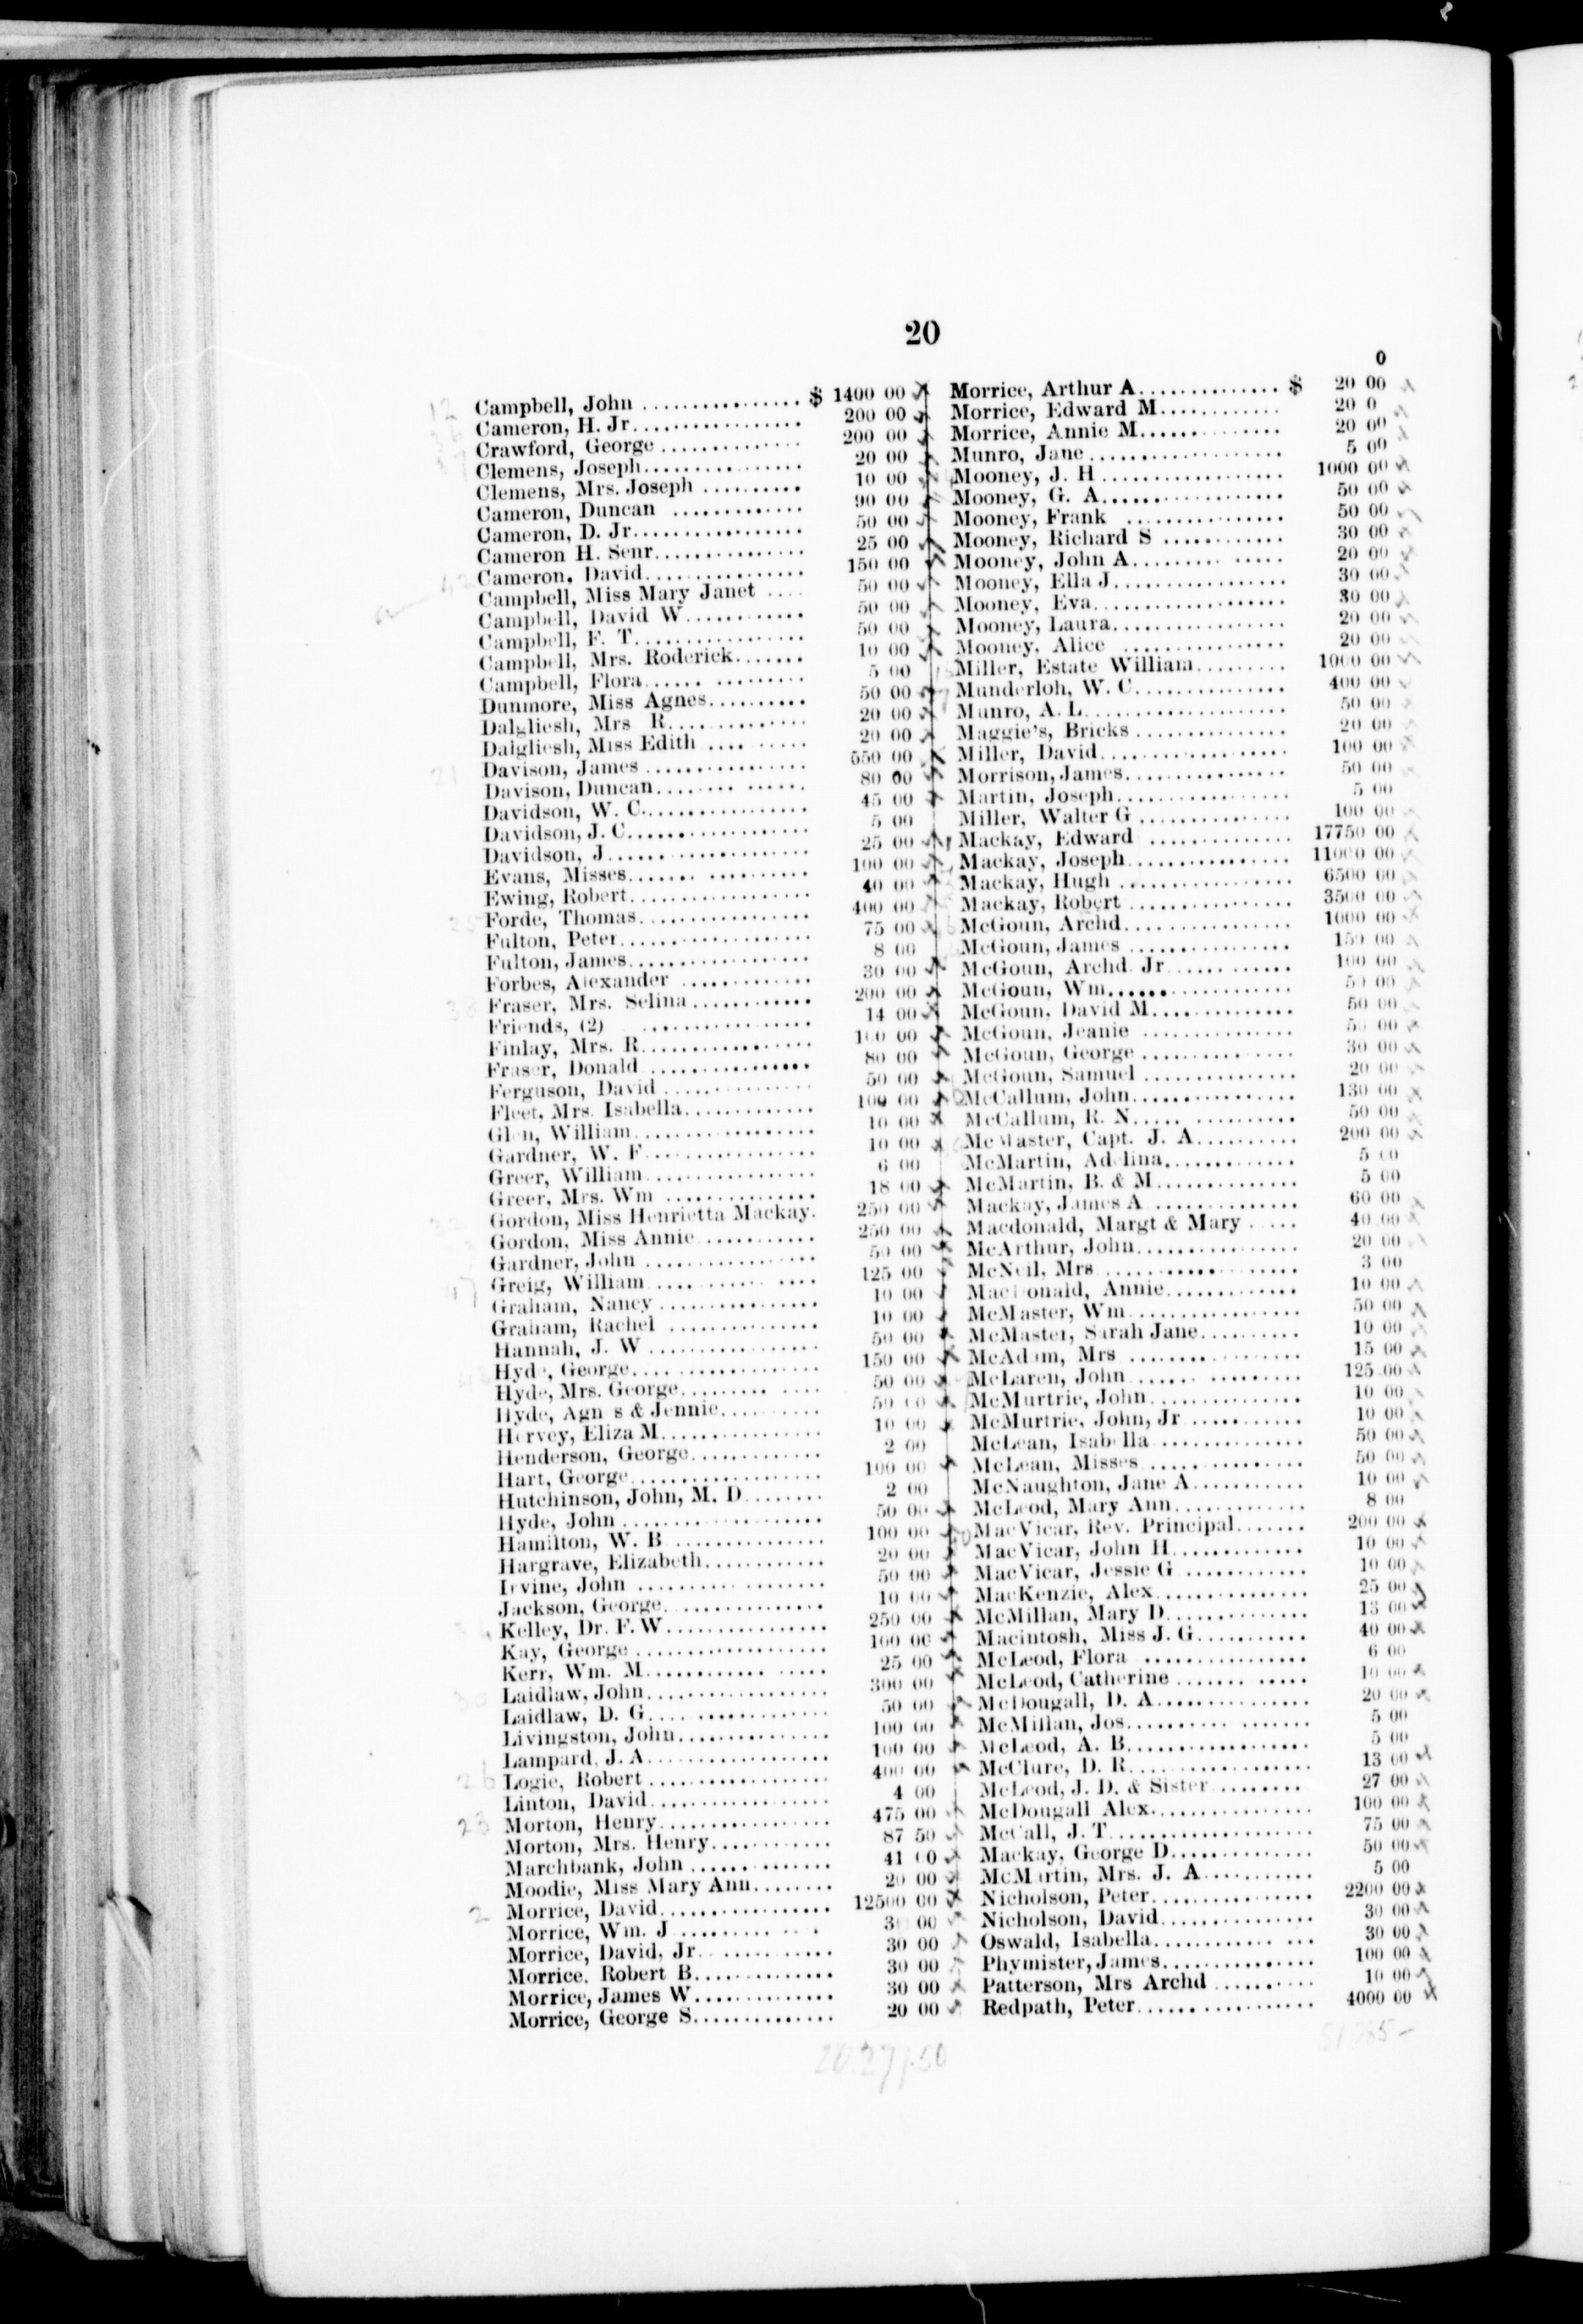 20
Campbell, John ................ $ 1400 00
Cameron, H. Jr................. 200 00
Crawford, George .............. 200 00
Clemens, Joseph................ 20 00
Clemens, Mrs. Joseph .......... 10 00
Cameron, Duncan ............. 90 00
Cameron, D. Jr................. 50 00
Cameron H. Senr............... 25 00
Cameron, David................ 150 00
Campbell, Miss Mary Janet .... 50 00
Campbell, David W............ 50 00
Campbell, F. T................. 50 00
Campbell, Mrs. Roderick....... 10 00
Campbell, Flora...... ......... 5 00
Dunmore, Miss Agnes.......... 50 00
Dalgliesh, Mrs R.............. 20 00
Dalgliesh, Miss Edith .... ..... 20 00
Davison, James ................ 550 00
Davison, Duncan........ ...... 80 00
Davidson, W. C................ 45 00
Davidson, J. C.................. 5 00
Davidson, J.................... 25 00
Evans, Misses....... .......... 100 00
Ewing, Robert.................. 40 00
Forde, Thomas................. 400 00
Fulton, Peter................... 75 00
Fulton, James.................. 8 00
Forbes, Alexander ............. 30 00
Fraser, Mrs. Selina............ 200 00
Friends, (2) ................. 14 00
Finlay, Mrs. R................. 100 00
Fraser, Donald ................ 80 00
Ferguson, David ............... 50 00
Fleet, Mrs. Isabella............. 100 00
Glen, William.................. 10 00
Gardner, W. F................. 10 00
Greer, William................. 6 00
Greer, Mrs. Wm ............... 18 00
Gordon, Miss Henrietta Mackay. 250 00
Gordon, Miss Annie ........... 250 00
Gardner, John ................. 50 00
Greig, William .......... .... 125 00
Graham, Nancy ................ 10 00
Graham, Rachel ............... 10 00
Hannah, J. W ................. 50 00
Hyde, George................... 150 00
Hyde, Mrs. George......... .... 50 00
Hyde, Agnes & Jennie.......... 50 00
Hervey, Eliza M................ 10 00
Henderson, George............. 2 00
Hart, George................... 100 00
Hutchinson, John, M. D........ 2 00
Hyde, John .................... 50 00
Hamilton, W. B ............... 100 00
Hargrave, Elizabeth............ 20 00
Irvine, John ................... 50 00
Jackson, George................ 10 00
Kelley, Dr. F. W................ 250 00
Kay, George ................... 100 00
Kerr, Wm. M............ ..... 25 00
Laidlaw, John.................. 300 00
Laidlaw, D. G.... ............. 50 00
Livingston, John............... 100 00
Lampard, J. A.................. 100 00
Logie, Robert .................. 400 00
Linton, David.................. 4 00
Morton, Henry................. 475 00
Morton, Mrs. Henry............ 87 50
Marchbank, John .............. 41 00
Moodie, Miss Mary Ann........ 20 00
Morrice, David................. 12500 00
Morrice, Wm. J .......... . . 00
Morrice, David, Jr............. 30 00
Morrice, Robert B.............. 30 00
Morrice, James W.............. 30 00
Morrice, George S.............. 20 00
0
Morrice, Arthur A.............. $ 20 00
Morrice, Edward M............ 20 0
Morrice, Annie M.............. 20 00
Munro, Jane ................... 5 00
Mooney, J. H .................. 1000 00
Mooney, G. A.................. 50 00
Mooney, Frank ................ 50 00
Mooney, Richard S ............ 30 00
Mooney, John A......... ..... 20 00
Mooney, Ella J................. 30 00
Mooney, Eva................... 30 00
Mooney, Laura................. 20 00
Mooney, Alice ................ 20 00
Miller, Estate William......... 1000 00
Munderloh, W. C............... 400 00
Munro, A. L.................... 50 00
Maggie's, Bricks............... 20 00
Miller, David.................. 100 00
Morrison, James................ 50 00
Martin, Joseph................. 5 00
Miller, Walter G ............... 100 00
Mackay, Edward .............. 17750 00
Mackay, Joseph................ 11000 00
Mackay, Hugh ................. 6500 00
Mackay, Robert ................ 3500 00
McGoun, Archd................ 1000 00
McGoun, James ................ 150 00
McGoun, Archd. Jr............ 100 00
McGoun, Wm.................. 50 00
McGoun, David M.............. 50 00
McGoun, Jeanie ............... 50 00
McGoun, George ............... 30 00
McGoun, Samuel ............... 20 00
McCallum, John................ 130 00
McCallum, R. N..... .......... 50 00
McMaster, Capt. J. A.......... 200 00
McMartin, Adelina............. 5 00
McMartin, B. & M.............. 5 00
Mackay, James A .............. 60 00
Macdonald, Margt & Mary ..... 40 00
McArthur, John................ 20 00
McNeil, Mrs ................... 3 00
MacDonald, Annie............. 10 00
McMaster, Wm................. 50 00
McMaster, Sarah Jane.......... 10 00
McAdam, Mrs ................. 15 00
McLaren, John....... ......... 125 00
McMurtrie, John............... 10 00
McMurtrie, John, Jr ........... 10 00
McLean, Isabella .............. 50 00
McLean, Misses................ 50 00
McNaughton, Jane A........... 10 00
McLeod, Mary Ann............. 8 00
MacVicar, Rev. Principal....... 200 00
MacVicar, John H............. 10 00
MacVicar, Jessie G ............ 10 00
MacKenzie, Alex............... 25 00
McMillan, Mary D.............. 13 00
Macintosh, Miss J. G........... 40 00
McLeod, Flora ................ 6 00
McLeod, Catherine ....... ..... 10 00
McDougall, D. A............... 20 00
McMillan, Jos.......... ....... 5 00
McLeod, A. B.................. 5 00
McClure, D. R.................. 13 00
McLeod, J. D. & Sister ........ 27 00
McDougall Alex................ 100 00
McCall, J. T.................... 75 00
Mackay, George D.............. 50 00
McMartin, Mrs. J. A........... 5 00
Nicholson, Peter................ 2200 00
Nicholson, David............... 30 00
Oswald, Isabella............ ... 30 00
Phymister, James............... 100 00
Patterson, Mrs Archd .......... 10 00
Redpath, Peter................. 4000 00